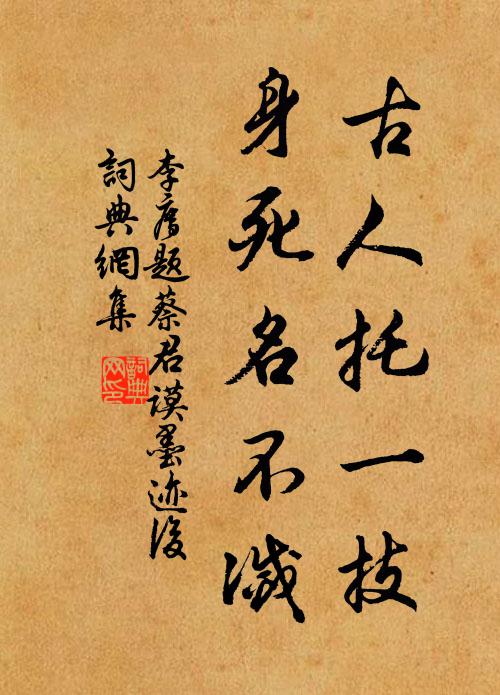 古人托一技
身死名不滅
李廌題蔡君謨墨迹後
詞典網集
詞典网印